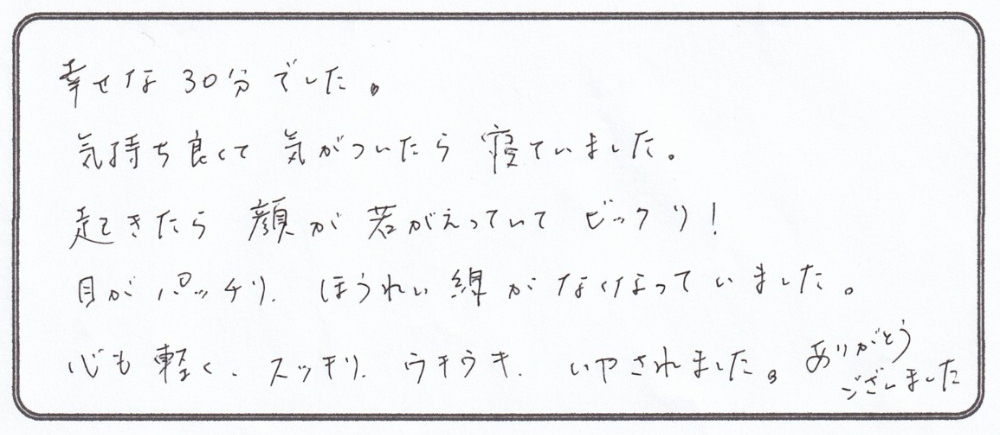 幸せな30分でした。
気持ち良くて 気がついたら 寝ていました。
起きたら 顔が若がえっていて ビックリ!
目がパッチリ、ほうれい線がなくなっていました。
心も軽く、スッキリ、ウキウキ、いやされました。ありがとう
ございました